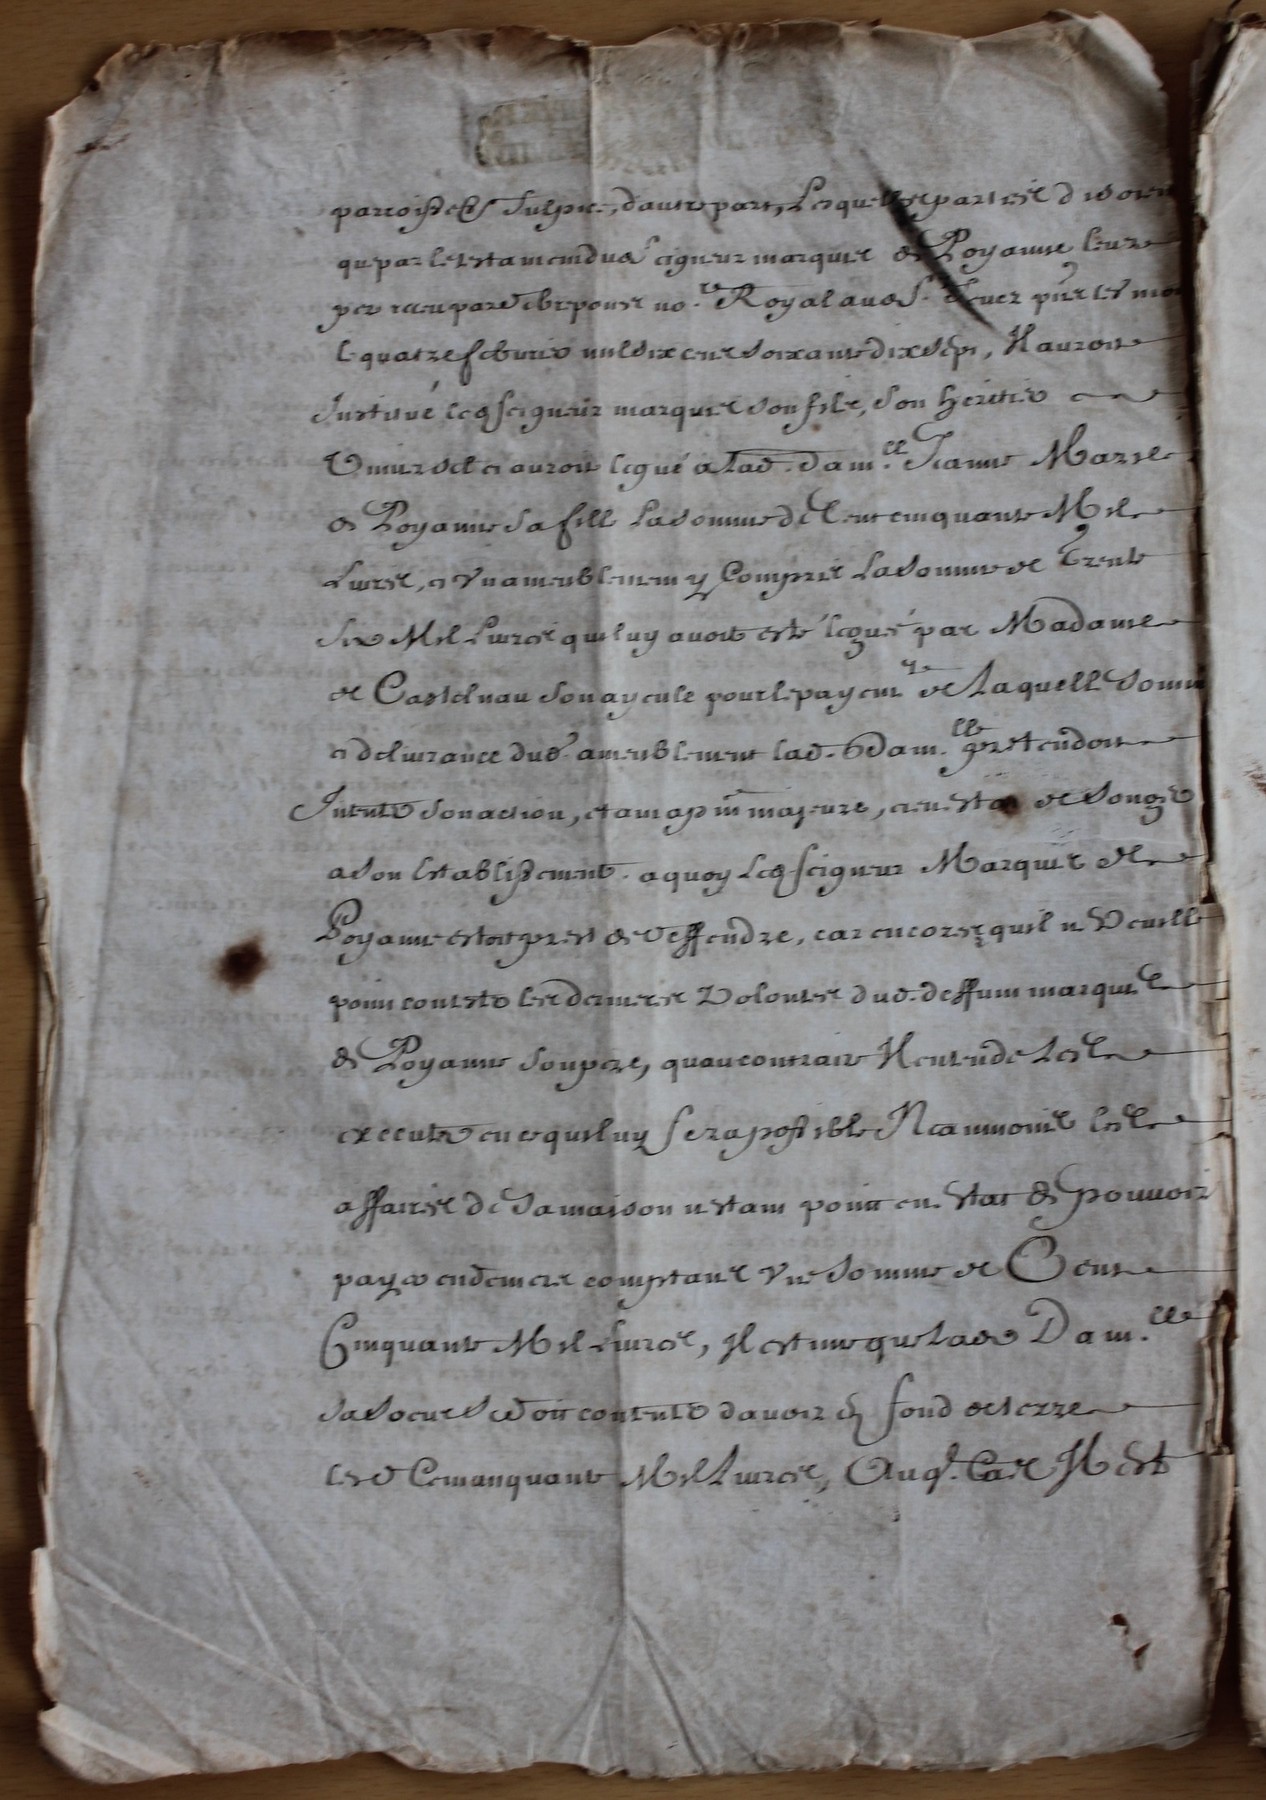 parroisse St Sulpice, dautre part, Lesquelles parties disoient
que par le testament dud seigneur marquis de Poyanne leur
pere receu par no.re Royal aud
le quatre febvrier mil six cens soixante dix sept, Il auroit
Institué led seigneur marquis son fils, son heritier
Universel et auroit legué a Lad. dam.lle Jeanne Marie
de Poyanne sa fille La somme de Cent cinquante Mil
Livres, et Un ameublement y Compris La somme de Trente
six Mil Livres qui luy avoit esté legué par Madame
de Castelnau son ayeule pour le payem.t de Laquelle somme
et delivrance dud. ameublement lad. Dam.lle pretendoit
Intenter son action, estant apnt majeure, et en estat de songer
a son establissement. a quoy led seigneur Marquis de
Poyanne estoit prest de deffendre, car encores quil ne Veuille
point contester les dernieres Volontes dud. deffunt marquis
de Poyanne son pere, quau contraire Il entende Les
executer en ce quil luy sera possible Neanmoins les
affaires de sa maison nestant point en estat de pouvoir
payer en deniers comptans Une somme de Cent
Cinquante Mil Livres, Il estime que Lade Dam.lle
sa soeur se doit contenter davoir en fond de terre
lesd Cent cinquante Mil Livres, Auq. Cas Il est